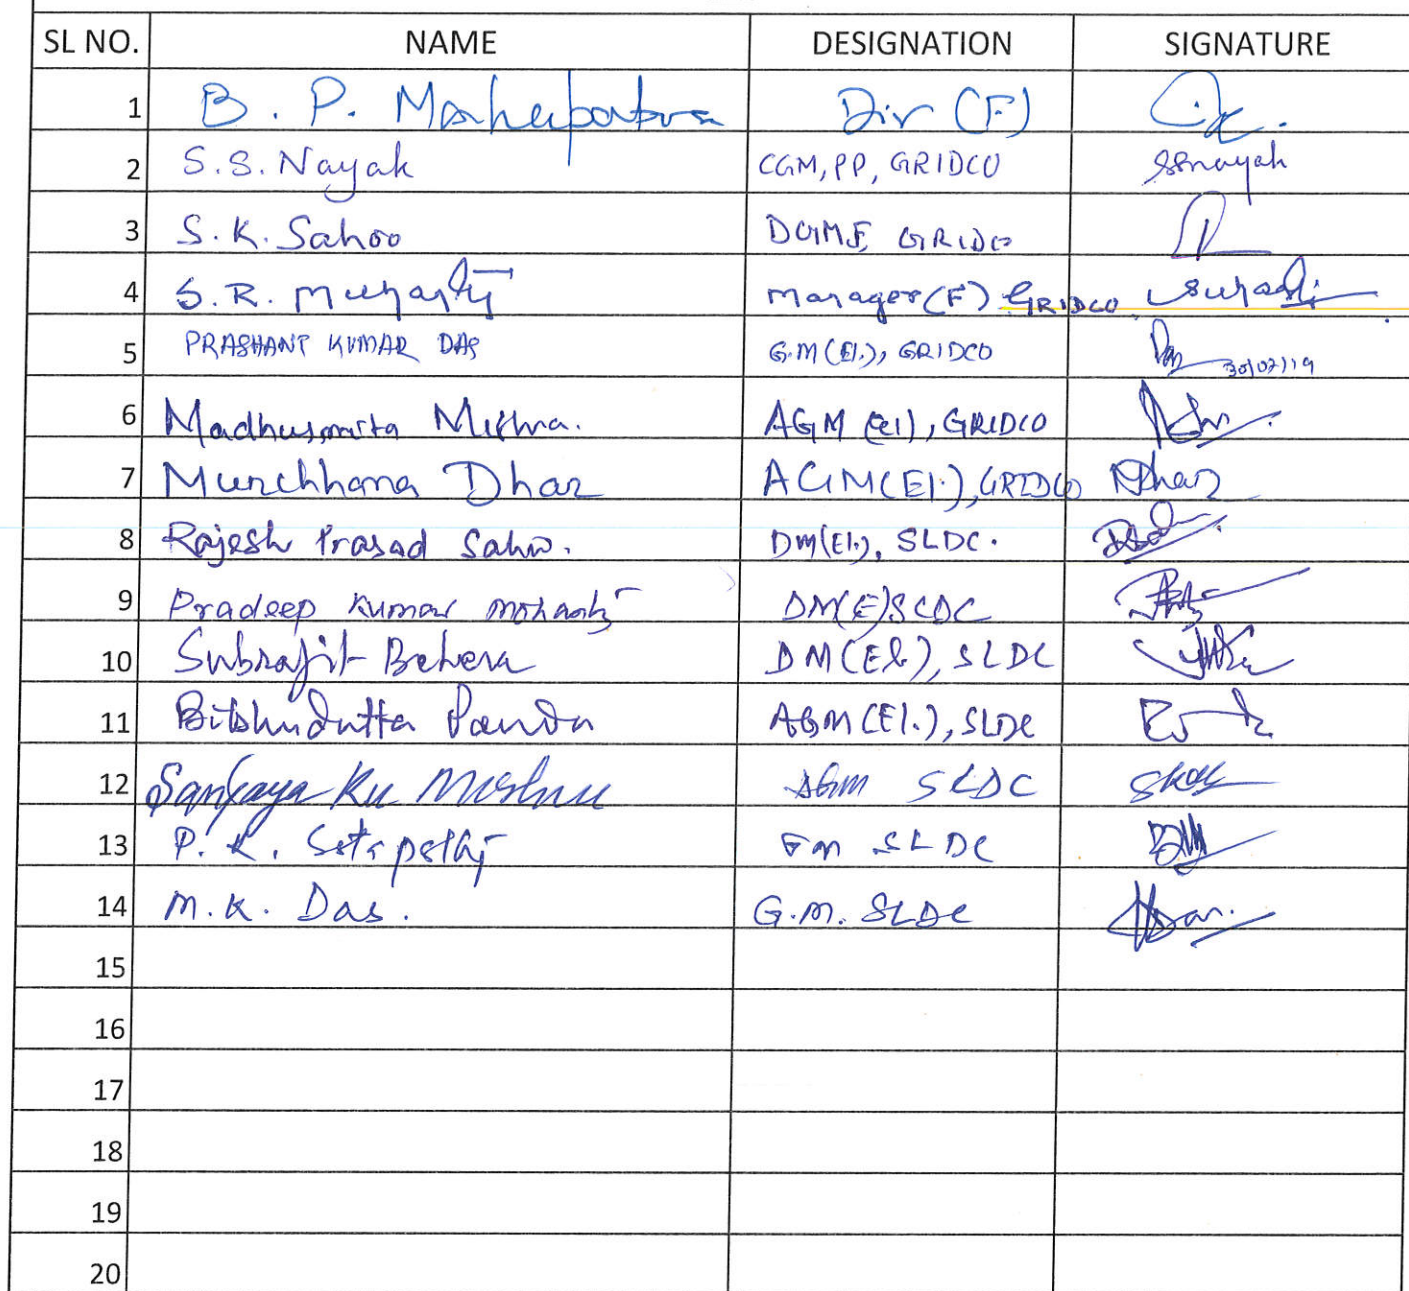 SL NO. NAME DESIGNATION SIGNATURE
1 B. P. Mahapatra Dir (F)
2 S.S. Nayak CGM, PP, GRIDCO SSnayak
3 S.K. Sahoo DGMF, GRIDCO
4 S.R. Manager (F) GRIDCO
5 PRASHANT KUMAR DAS G.M (El.), GRIDCO 30/07/19
6 Madhusmita Mishra. AGM (El), GRIDCO
7 Murchhana Dhar AGM (El.), GRIDCO Dhar
8 Rajesh Prasad Sahu. DM(El.), SLDC.
9 Pradeep Kumar Mohanty DM(E) SLDC
10 Subrajit Behera DM (El.), SLDC
11 Bibhudutta Panda AGM (El.), SLDC
12 Sanjaya Ku Mishra AGM SLDC
13 P. K. Satapathy SLDC
14 M.K. Das. G.M. SLDC
15
16
17
18
19
20